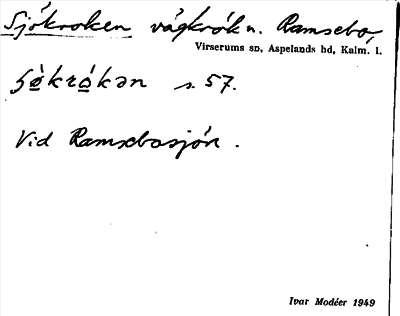 Sjökroken vägkrök n. Ramsebo,
Virserums sn, Aspelands hd, Kalm. l.
s. 57.
Vid Ramsebosjön.
Ivar Modéer 1949